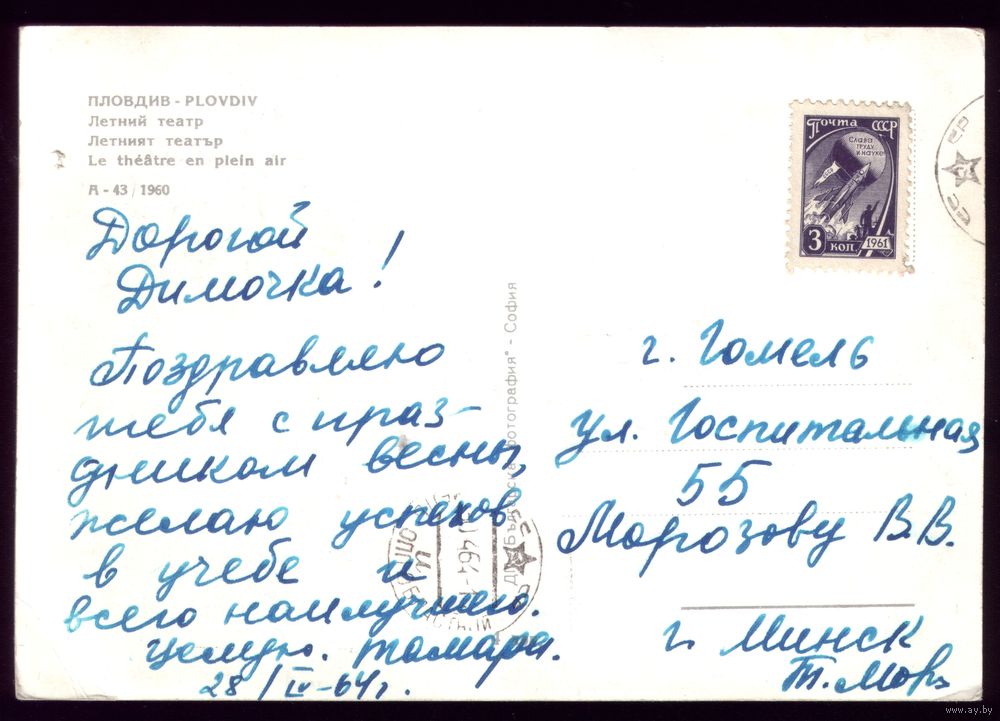 ПЛОВДИВ - PLOVDIV
Летний театр
Летният театър
Le théâtre en plein air
А - 43 / 1960
Дорогой
Димочка!
Поздравляю
тебя с праз-
дником весны,
желаю успехов
в учебе и
всего наилучшего.
Целую. Тамара.
28/IV-64г.
"Българска фотография" - София
Почта СССР
Слава
труду
и науке!
3 коп.
1961
г. Гомель
ул. Госпитальная
55
Морозову В.В.
г. Минск
Т. Мороз
www.ay.by